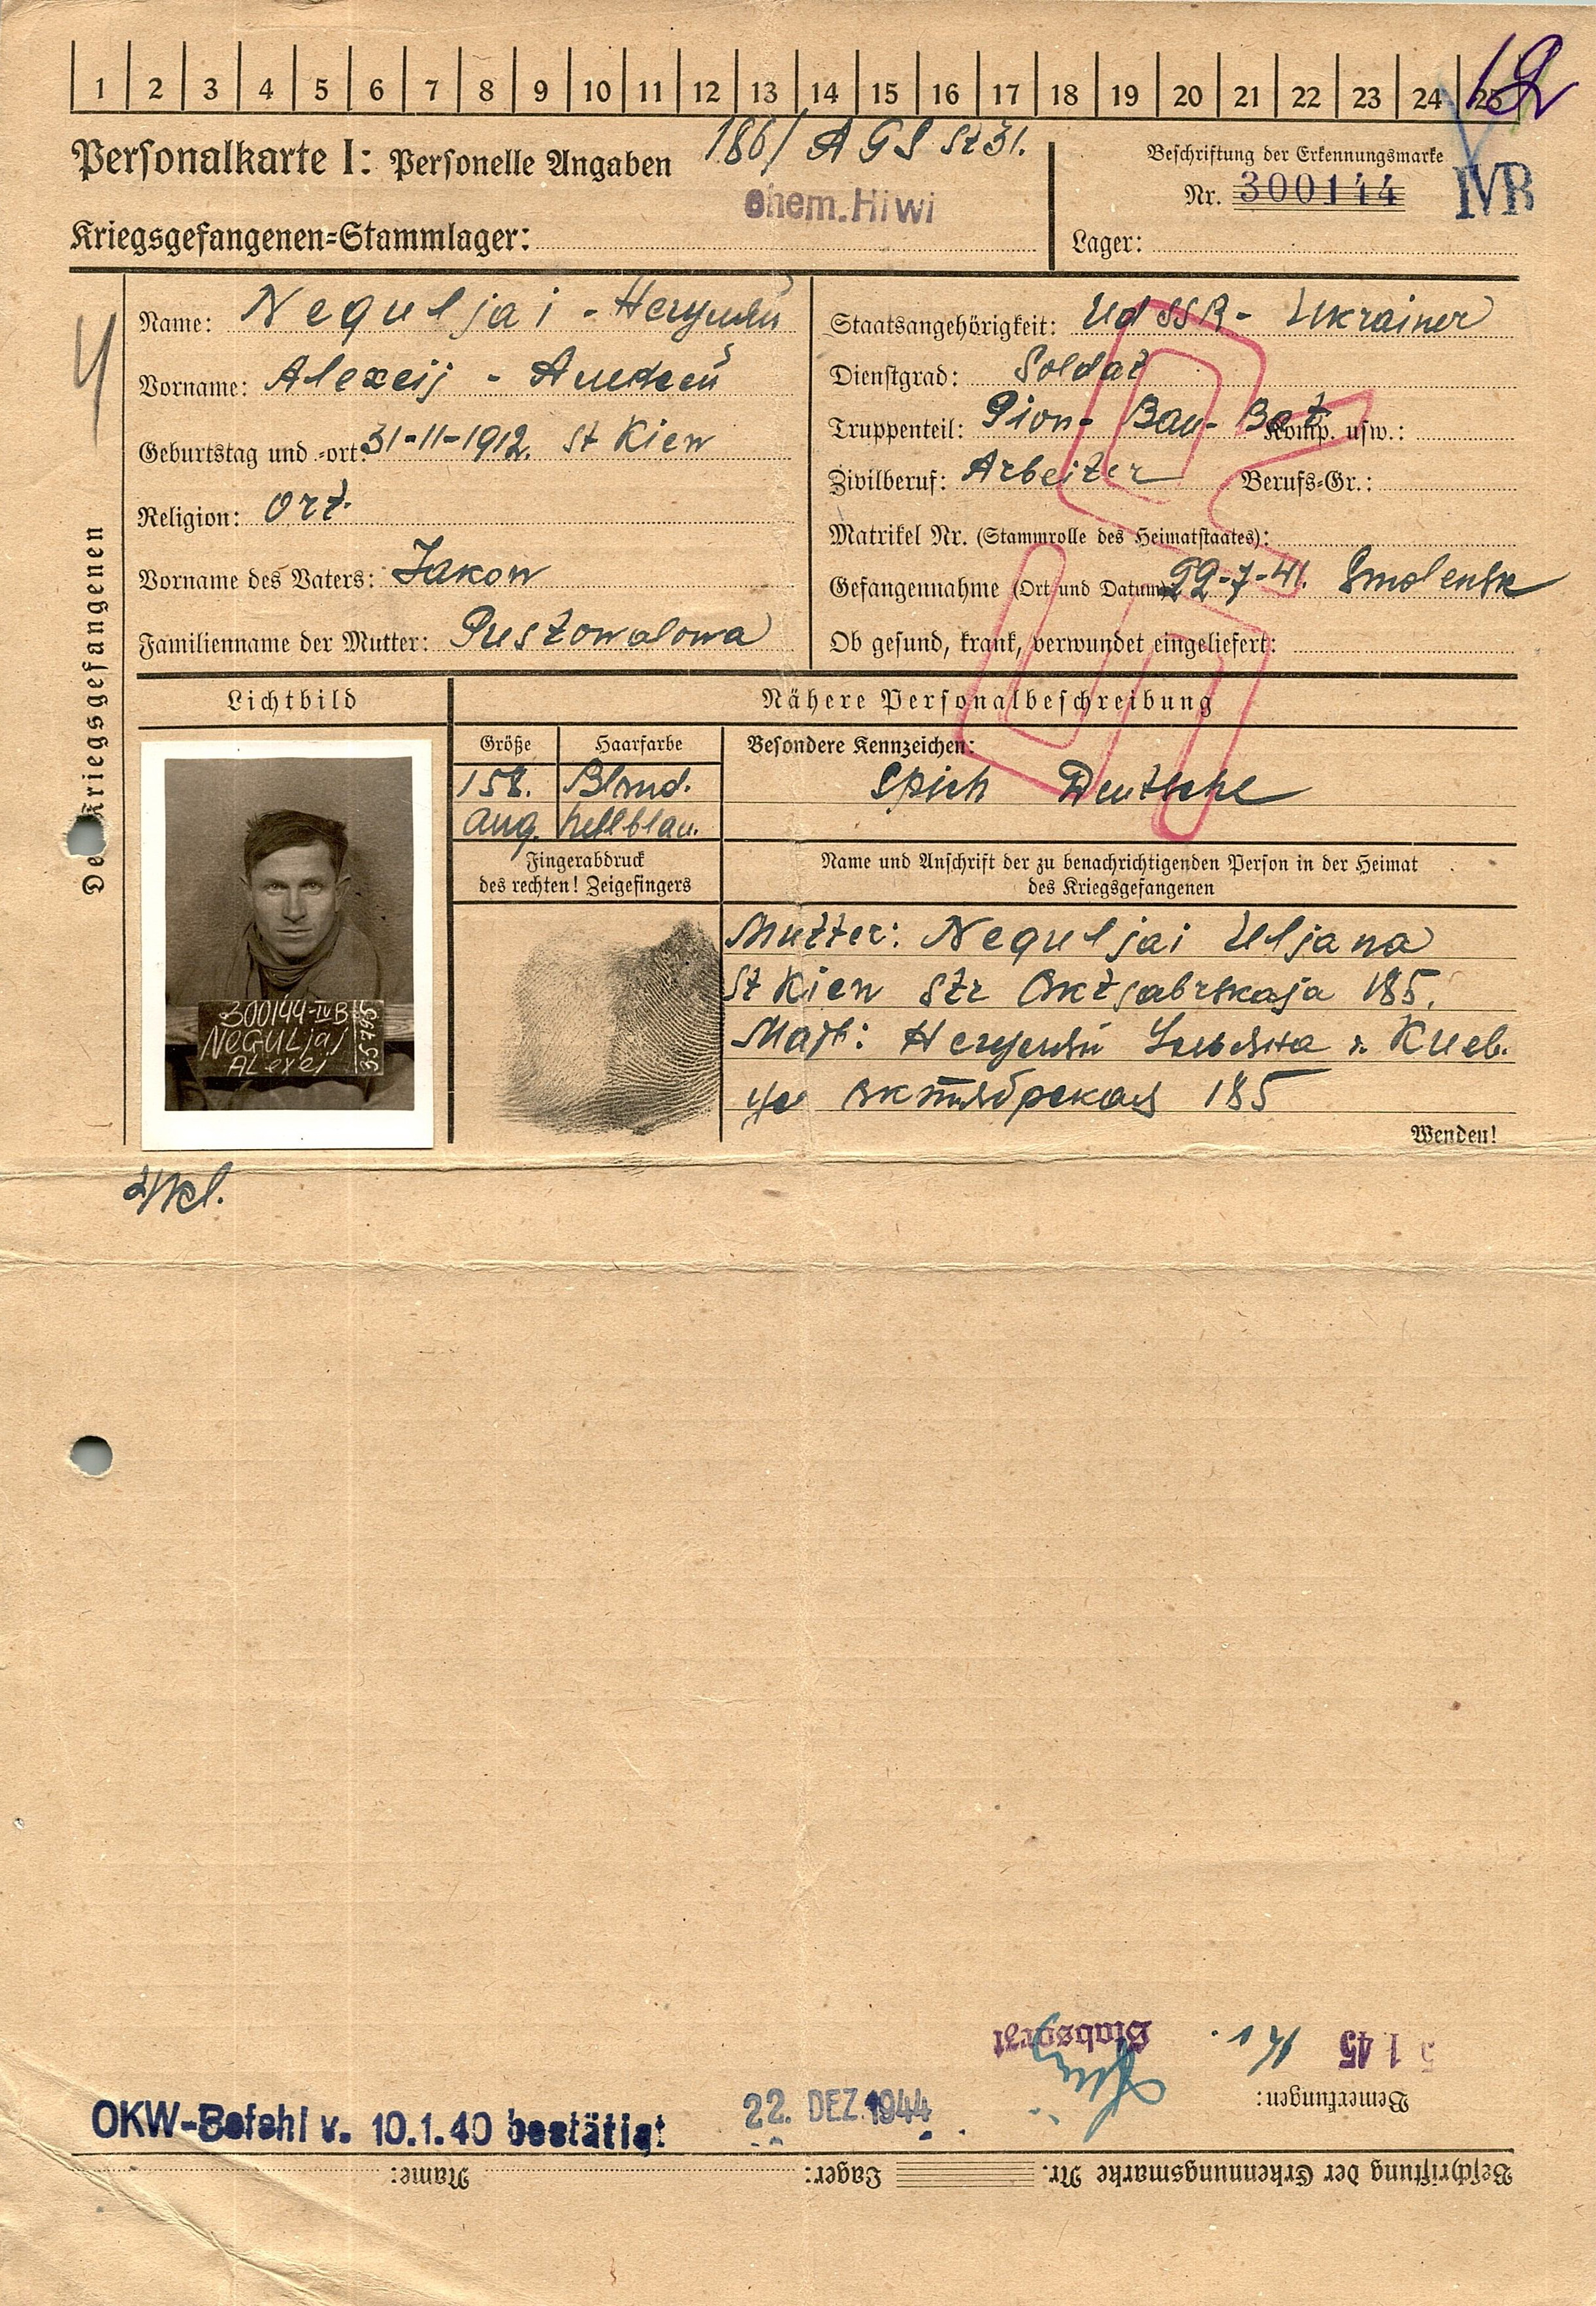 1 2 3 4 5 6 7 8 9 10 11 12 13 14 15 16 17 18 19 20 21 22 23 24 25
Personalkarte I: Personelle Angaben
186/ A G S St 31.
ehem. Hiwi
Kriegsgefangenen-Stammlager:
Beschriftung der Erkennungsmarke
Nr. 300144 IVB
Lager:
Des Kriegsgefangenen
Name: Neguljai - Негуляй
Vorname: Alexeij - Алексей
Geburtstag und -ort: 31-11-1912. St Kiew
Religion: Ort.
Vorname des Vaters: Jakow
Familienname der Mutter: Pustowalowa
Staatsangehörigkeit: UdSSR - Ukrainer
Dienstgrad: Soldat
Truppenteil: Pion- Bau- Bat. Komp. usw.:
Zivilberuf: Arbeiter Berufs-Gr.:
Matrikel Nr. (Stammrolle des Heimatstaates):
Gefangennahme (Ort und Datum): 22-7-41. Smolensk
Ob gesund, krank, verwundet eingeliefert:
Lichtbild
Nähere Personalbeschreibung
Größe Haarfarbe Besondere Kennzeichen:
158. Blond.
Aug. hellblau.
Sprich Deutsche
Fingerabdruck
des rechten! Zeigefingers
Name und Anschrift der zu benachrichtigenden Person in der Heimat
des Kriegsgefangenen
Mutter: Neguljai Uljana
St Kiew Str Oktjabrskaja 185.
Мать: Негуляй Ульяна г. Киев.
ул Октябрская 185
Wenden!
300144-IVB
NEGULjaj
ALexei
35745
OKW-Befehl v. 10.1.40 bestätigt
22. DEZ. 1944
Stabsarzt
5 1 45
Bemerkungen:
Beschriftung der Erkennungsmarke Nr. Lager: Name: